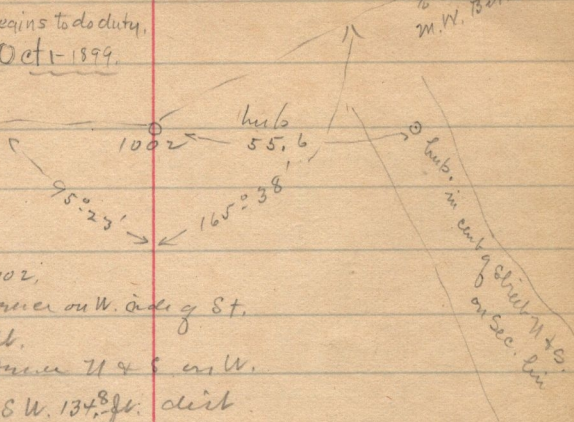 egins to do duty,
Oct 1 - 1899.
To
M.W. B
hub
1002 55.6
95° 23'
165° 38'
hub. in cent of Street N & S.
on Sec. lin
002,
on W. side of St.
N & S on W.
S W. 134.8 ft. dist